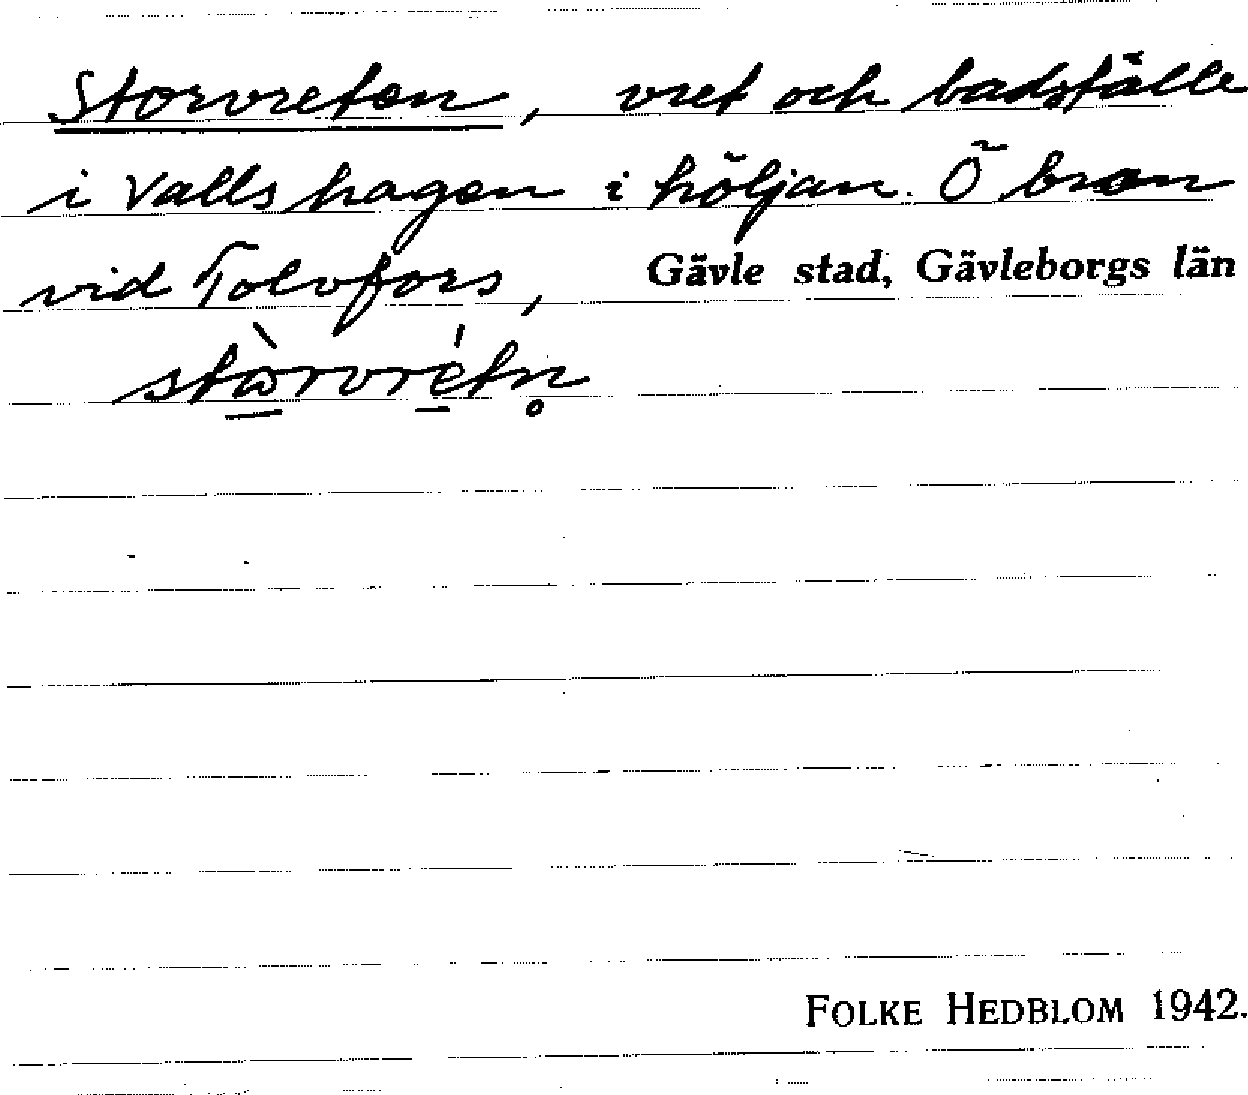 Storvreten, vret och badställe
i Valls hagen i höljan. Ö bron
vid Tolvfors, Gävle stad, Gävleborgs län
stàrvrétn̥
FOLKE HEDBLOM 1942.